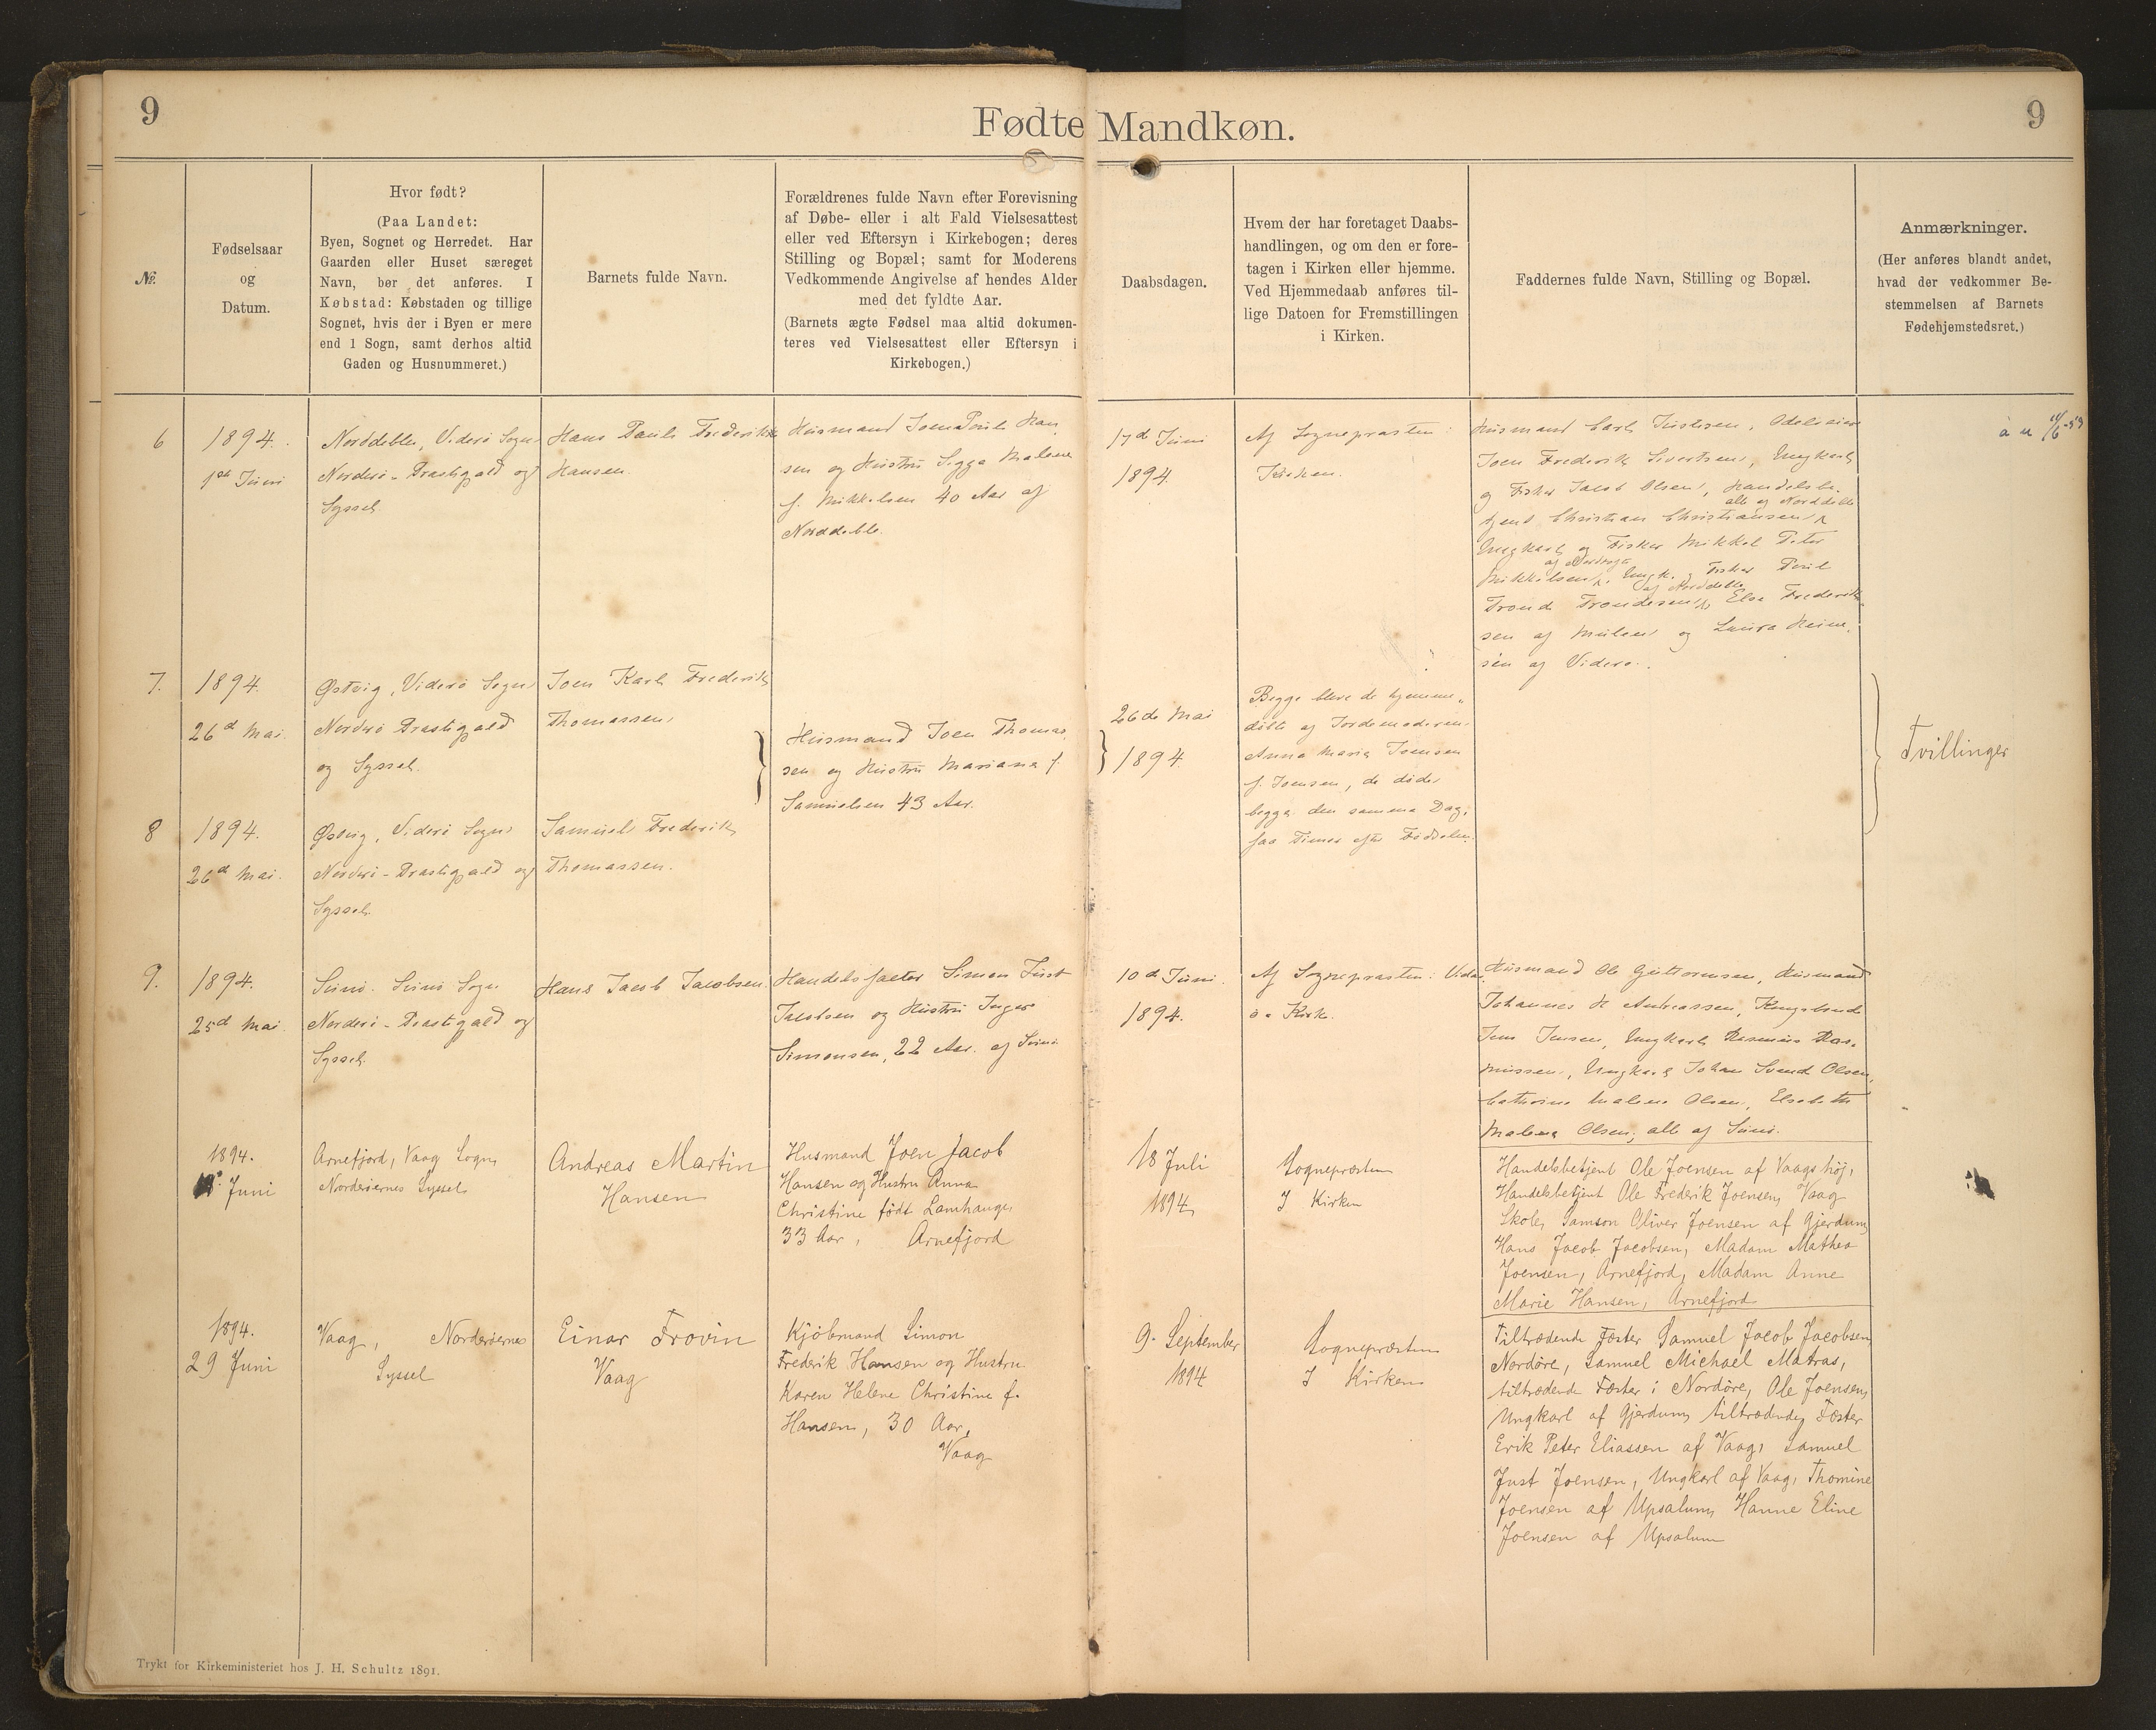 9
Fødte Mandkøn.
9
№.
Fødselsaar
og
Datum.
Hvor født?
(Paa Landet:
Byen, Sognet og Herredet. Har
Gaarden eller Huset særeget
Navn, bør det anføres. I
Købstad: Købstaden og tillige
Sognet, hvis der i Byen er mere
end 1 Sogn, samt derhos altid
Gaden og Husnummeret.)
Barnets fulde Navn.
Forældrenes fulde Navn efter Forevisning
af Døbe- eller i alt Fald Vielsesattest
eller ved Eftersyn i Kirkebogen; deres
Stilling og Bopæl; samt for Moderens
Vedkommende Angivelse af hendes Alder
med det fyldte Aar.
(Barnets ægte Fødsel maa altid dokumen-
teres ved Vielsesattest eller Eftersyn i
Kirkebogen.)
Daabsdagen.
Hvem der har foretaget Daabs-
handlingen, og om den er fore-
tagen i Kirken eller hjemme.
Ved Hjemmedaab anføres til-
lige Datoen for Fremstillingen
i Kirken.
Faddernes fulde Navn, Stilling og Bopæl.
Anmærkninger.
(Her anføres blandt andet,
hvad der vedkommer Be-
stemmelsen af Barnets
Fødehjemstedsret.)
6
1894.
1st Juni
Norddeble, Viderö Sogn
Norderö-Præstigjæld og
Syssel.
Hans Pauli Frederik
Hansen.
Husmand Joen Poul Han
sen og Hustru Sigga Malene
f. Mikkelsen 40 Aar af
Norddeble.
17d Juni
1894.
Af Sognepræsten i
Kirken.
Husmand Carl Justesen, Odelseier
Joen Frederik Sivertsen, Ungkarl
og Fisker Jacob Olsen, Handelsbe-
alle af Norddeble
tjent Christian Christiansen,
Ungkarl og Fisker Mikkel Peter
Mikkelsen, Ungk. og Fisker Poul
af Norddeble
Trond Trondesen, Else Frederik-
sen af Mulen og Laura Heine-
sen af Viderö.
7.
1894.
26d Mai.
Østvig, Viderö Sogn
Norderö Præstigjæld
og Syssel.
Joen Karl Frederik
Thomassen,
Husmand Joen Thomas-
sen og Hustru Mariane f.
Samuelsen 43 Aar.
26de Mai
1894.
Begge bleve de hjemme-
døbt af Jordemoderen
Anna Maria Joensen
f. Joensen, de døde
begge den samme Dag,
faa Timer efter Fødselen.
Tvillinger
8
1894.
26d Mai.
Østvig, Viderö Sogn
Norderö-Præstigjæld og
Syssel.
Samuel Frederik
Thomassen.
9.
1894.
25d Mai.
Svinö. Svinö Sogn
Norderö-Præstigjæld og
Syssel.
Hans Jacob Jacobsen.
Handelsfactor Simon Just
Jacobsen og Hustru Inger
Simonsen, 22 Aar. af Svinö
10d Juni.
1894.
Af Sognepræsten i Vider
ö. Kirk.
Husmand Ole Guttormsen, Husmand
Johannes H Andreassen, Kongsbonde
Jens Jensen, Ungkarl Rasmus Ras-
mussen, Ungkarl Johan Svend Olsen,
Cathrine Malene Olsen, Elsebeth
Malena Olsen; alle af Svinö.
1894.
Juni
Arnefjord, Vaag Sogn,
Norderöernes Syssel
Andreas Martin
Hansen
Husmand Joen Jacob
Hansen og Hustru Anna
Christine født Lamhauge,
33 Aar, Arnefjord
18 Juli
1894
Sognepræsten
I Kirken
Handelsbetjent Ole Joensen af Vaagshøj,
Handelsbetjent Ole Frederik Joensen, Vaag
Skole, Samson Oliver Joensen af Gjerdum,
Hans Jacob Jacobsen, Madam Mathea
Joensen, Arnefjord, Madam Anne
Marie Hansen, Arnefjord
1894.
29 Juni
Vaag, Norderöernes
Syssel
Einar Frovin
Vaag
Kjöbmand Simon
Frederik Hansen og Hustru
Karen Helene Christine f.
Hansen, 30 Aar,
Vaag
9. September
1894
Sognepræsten
I Kirken
Tiltrædende Fæster Samuel Jacob Jacobsen,
Nordöre, Samuel Michael Matras,
tiltrædende Fæster i Nordöre, Ole Joensen,
Ungkarl af Gjerdum, tiltrædende Fæster
Erik Peter Eliassen af Vaag, Samuel
Just Joensen, Ungkarl af Vaag, Thomine
Joensen af Upsalum, Hanne Eline
Joensen af Upsalum
Trykt for Kirkeministeriet hos J. H. Schultz 1891.